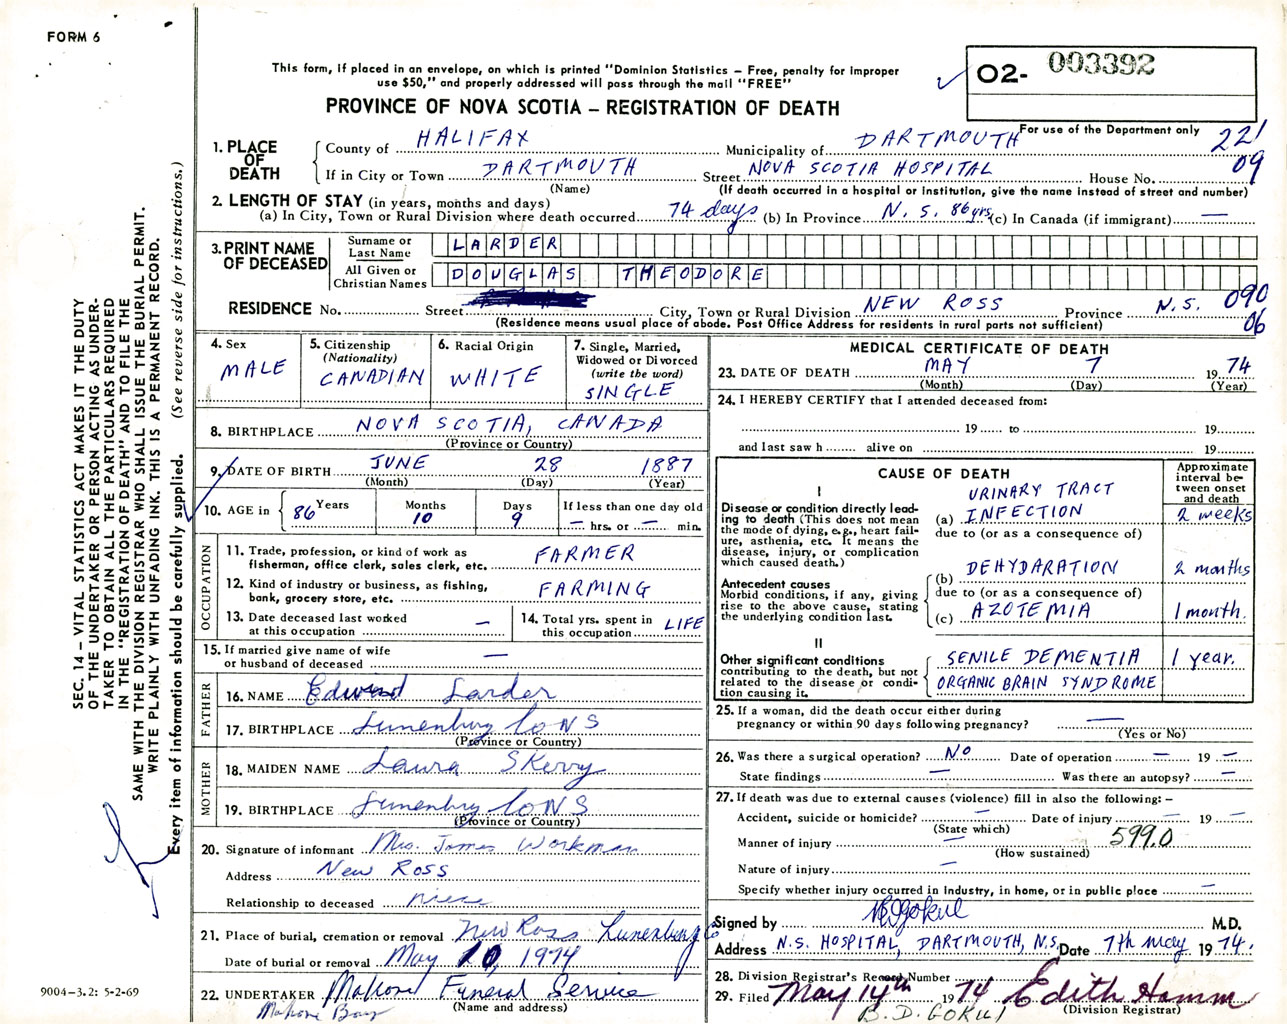 FORM 6
This form, if placed in an envelope, on which is printed "Dominion Statistics – Free, penalty for improper
use $50," and properly addressed will pass through the mail "FREE"
PROVINCE OF NOVA SCOTIA – REGISTRATION OF DEATH
02- 003392
For use of the Department only
221
09
1. PLACE OF DEATH
County of HALIFAX Municipality of DARTMOUTH
If in City or Town DARTMOUTH Street NOVA SCOTIA HOSPITAL House No.
(Name) (If death occurred in a hospital or institution, give the name instead of street and number)
2. LENGTH OF STAY (in years, months and days)
(a) In City, Town or Rural Division where death occurred 74 days (b) In Province N. S. 86 yrs (c) In Canada (if immigrant) —
3. PRINT NAME OF DECEASED
Surname or Last Name LARDER
All Given or Christian Names DOUGLAS THEODORE
RESIDENCE No. Street City, Town or Rural Division NEW ROSS Province N.S. 090
06
(Residence means usual place of abode. Post Office Address for residents in rural parts not sufficient)
4. Sex MALE
5. Citizenship (Nationality) CANADIAN
6. Racial Origin WHITE
7. Single, Married, Widowed or Divorced (write the word) SINGLE
8. BIRTHPLACE NOVA SCOTIA, CANADA
(Province or Country)
9. DATE OF BIRTH JUNE 28 1887
(Month) (Day) (Year)
10. AGE in 86 Years Months 10 Days 9 If less than one day old — hrs. or — min.
OCCUPATION
11. Trade, profession, or kind of work as fisherman, office clerk, sales clerk, etc. FARMER
12. Kind of industry or business, as fishing, bank, grocery store, etc. FARMING
13. Date deceased last worked at this occupation —
14. Total yrs. spent in this occupation LIFE
15. If married give name of wife or husband of deceased —
FATHER
16. NAME Edward Larder
17. BIRTHPLACE Lunenburg Co N S
(Province or Country)
MOTHER
18. MAIDEN NAME Laura Skerry
19. BIRTHPLACE Lunenburg Co N S
(Province or Country)
20. Signature of informant Mrs. James Workman
Address New Ross
Relationship to deceased niece
21. Place of burial, cremation or removal New Ross Lunenburg Co
Date of burial or removal May 10, 1974
22. UNDERTAKER Mahone Funeral Service
(Name and address)
Mahone Bay
MEDICAL CERTIFICATE OF DEATH
23. DATE OF DEATH MAY 7 1974
(Month) (Day) (Year)
24. I HEREBY CERTIFY that I attended deceased from:
19 to 19
and last saw h alive on 19
CAUSE OF DEATH
Approximate interval between onset and death
I
Disease or condition directly leading to death (This does not mean the mode of dying, e.g., heart failure, asthenia, etc. It means the disease, injury, or complication which caused death.)
URINARY TRACT
(a) INFECTION 2 weeks
due to (or as a consequence of)
Antecedent causes
Morbid conditions, if any, giving rise to the above cause, stating the underlying condition last.
(b) DEHYDARATION 2 months
due to (or as a consequence of)
(c) AZOTEMIA 1 month.
II
Other significant conditions contributing to the death, but not related to the disease or condition causing it.
SENILE DEMENTIA 1 year.
ORGANIC BRAIN SYNDROME
25. If a woman, did the death occur either during pregnancy or within 90 days following pregnancy? —
(Yes or No)
26. Was there a surgical operation? No Date of operation — 19 —
State findings — Was there an autopsy? —
27. If death was due to external causes (violence) fill in also the following: –
Accident, suicide or homicide? — Date of injury — 19 —
(State which)
Manner of injury — 599.0
(How sustained)
Nature of injury —
Specify whether injury occurred in industry, in home, or in public place —
Signed by BDGokul M.D.
Address N.S. HOSPITAL, DARTMOUTH, N.S. Date 7th May 1974.
28. Division Registrar's Record Number
29. Filed May 14th 1974 Edith Hamm
(Division Registrar)
B. D. GOKUL
SEC. 14 – VITAL STATISTICS ACT MAKES IT THE DUTY
OF THE UNDERTAKER OR PERSON ACTING AS UNDER-
TAKER TO OBTAIN ALL THE PARTICULARS REQUIRED
IN THE "REGISTRATION OF DEATH" AND TO FILE THE
SAME WITH THE DIVISION REGISTRAR WHO SHALL ISSUE THE BURIAL PERMIT.
WRITE PLAINLY WITH UNFADING INK. THIS IS A PERMANENT RECORD.
Every item of information should be carefully supplied. (See reverse side for instructions.)
9004-3.2: 5-2-69